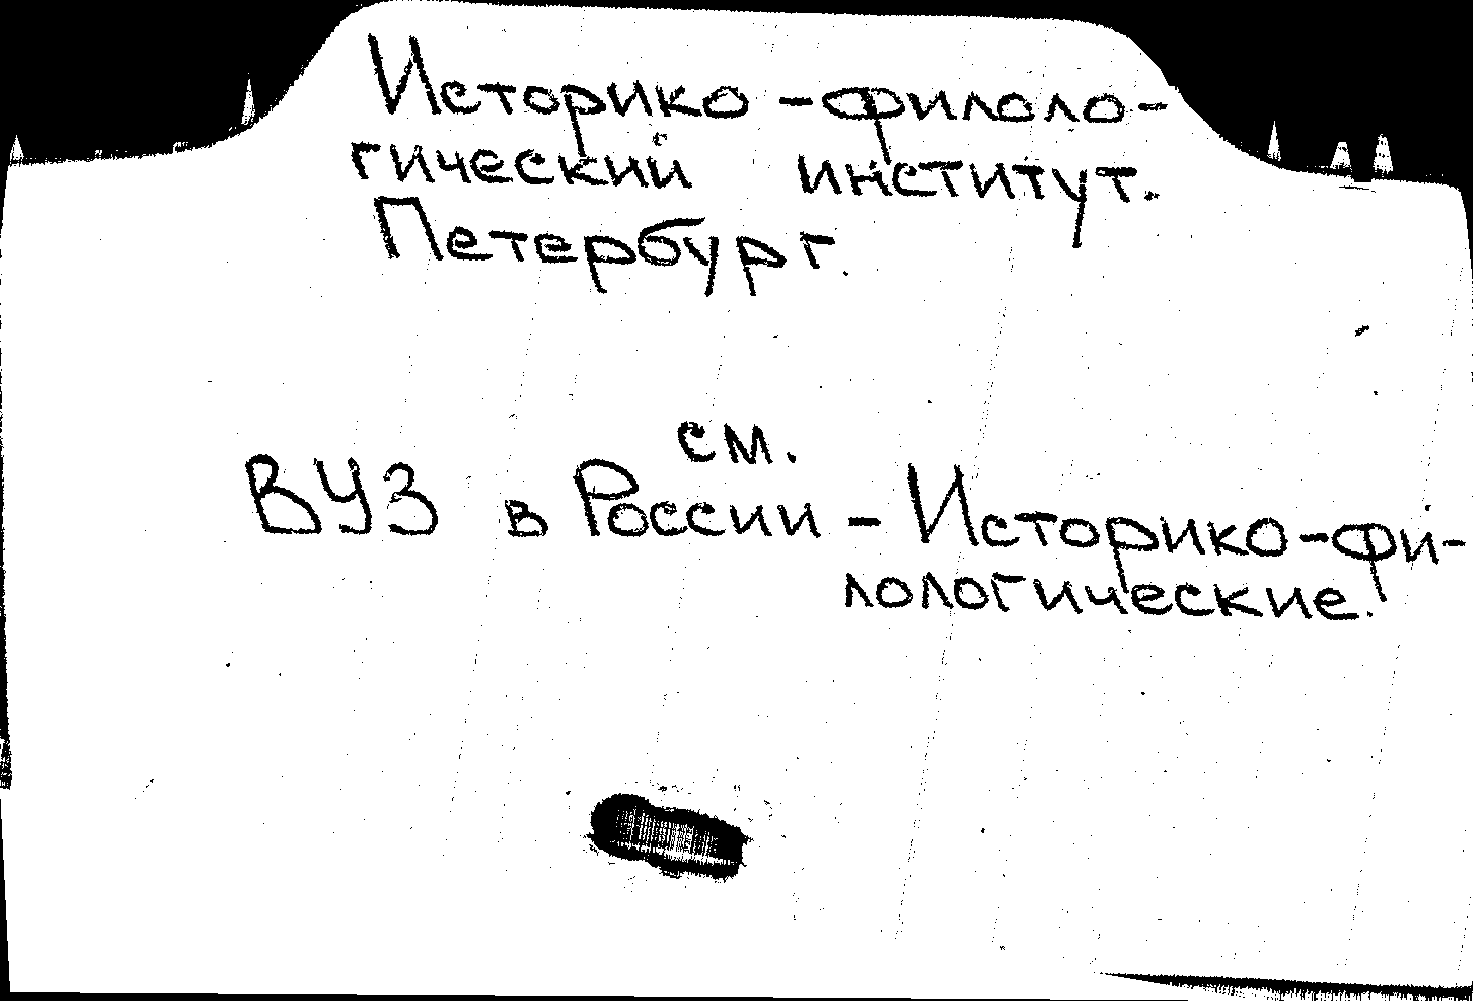 Историко-филоло-
гический институт.
Петербург.
см.
ВУЗ в России - Историко-фи-
лологические.